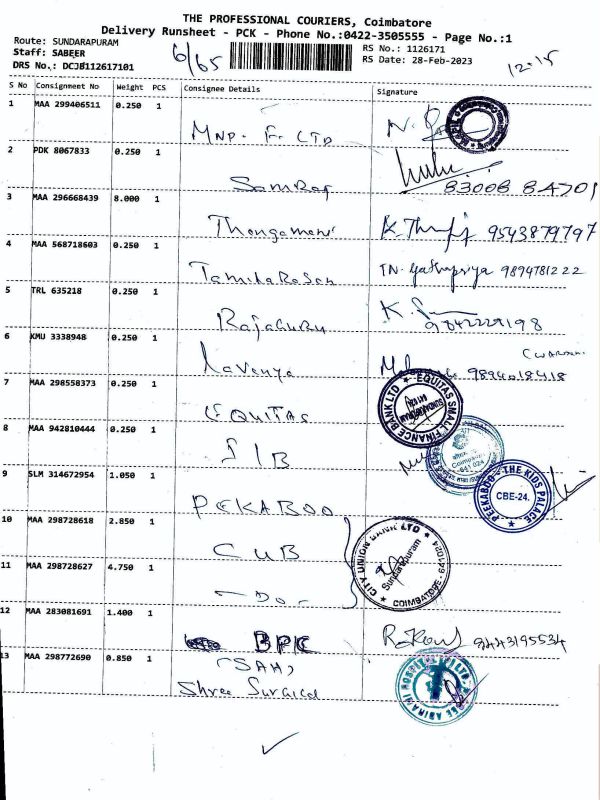 THE PROFESSIONAL COURIERS, Coimbatore
Delivery Runsheet - PCK - Phone No.:0422-3505555 - Page No.:1
Route: SUNDARAPURAM
Staff: SABEER
DRS No.: DCJB112617101
6/65
RS No.: 1126171
RS Date: 28-Feb-2023
12.15
S No Consignment No Weight PCS Consignee Details Signature
1 MAA 299406511 0.250 1 MNP. F. LTD
2 PDK 8067833 0.250 1 Samraj 83008 84701
3 MAA 296668439 8.000 1 Thangamani 9543879797
4 MAA 568718603 0.250 1 Tamilarasan TN. 9894781222
5 TRL 635218 0.250 1 Rajaguru 9842229198
6 KMU 3338948 0.250 1 Lavanya 9894018418
7 MAA 298558373 0.250 1 EQUITAS
EQUITAS SMALL FINANCE BANK LTD
8 MAA 942810444 0.250 1 SIB
641 024
9 SLM 314672954 1.050 1 PEEKABOO
PEEKABOO - THE KIDS PALACE
CBE-24.
10 MAA 298728618 2.850 1 CUB
CITY UNION BANK LTD
Sundarapuram
COIMBATORE - 641024
11 MAA 298728627 4.750 1 - Do -
12 MAA 283081691 1.400 1 BPC 9443195534
13 MAA 298772690 0.850 1 (SAH)
Shree Surgical